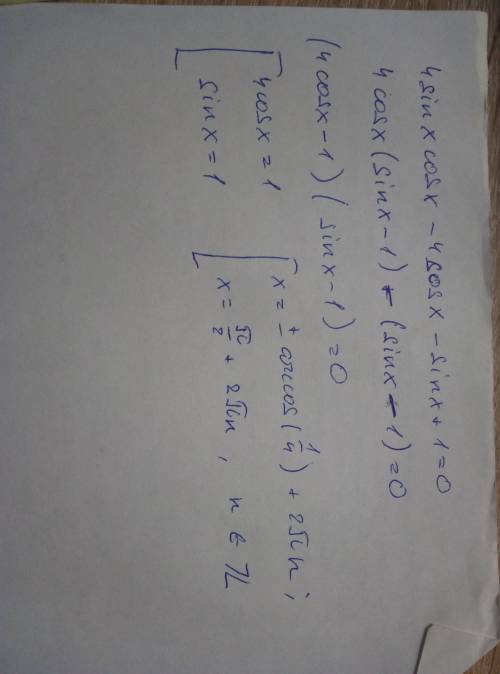 4sinxcosx - 4cosx - sinx + 1 = 0
4cosx(sinx - 1) - (sinx - 1) = 0
(4cosx - 1)(sinx - 1) = 0
[ 4cosx = 1 [ x = ± arccos(1/4) + 2πn ;
[ sinx = 1 [ x = π/2 + 2πn , n ∈ Z